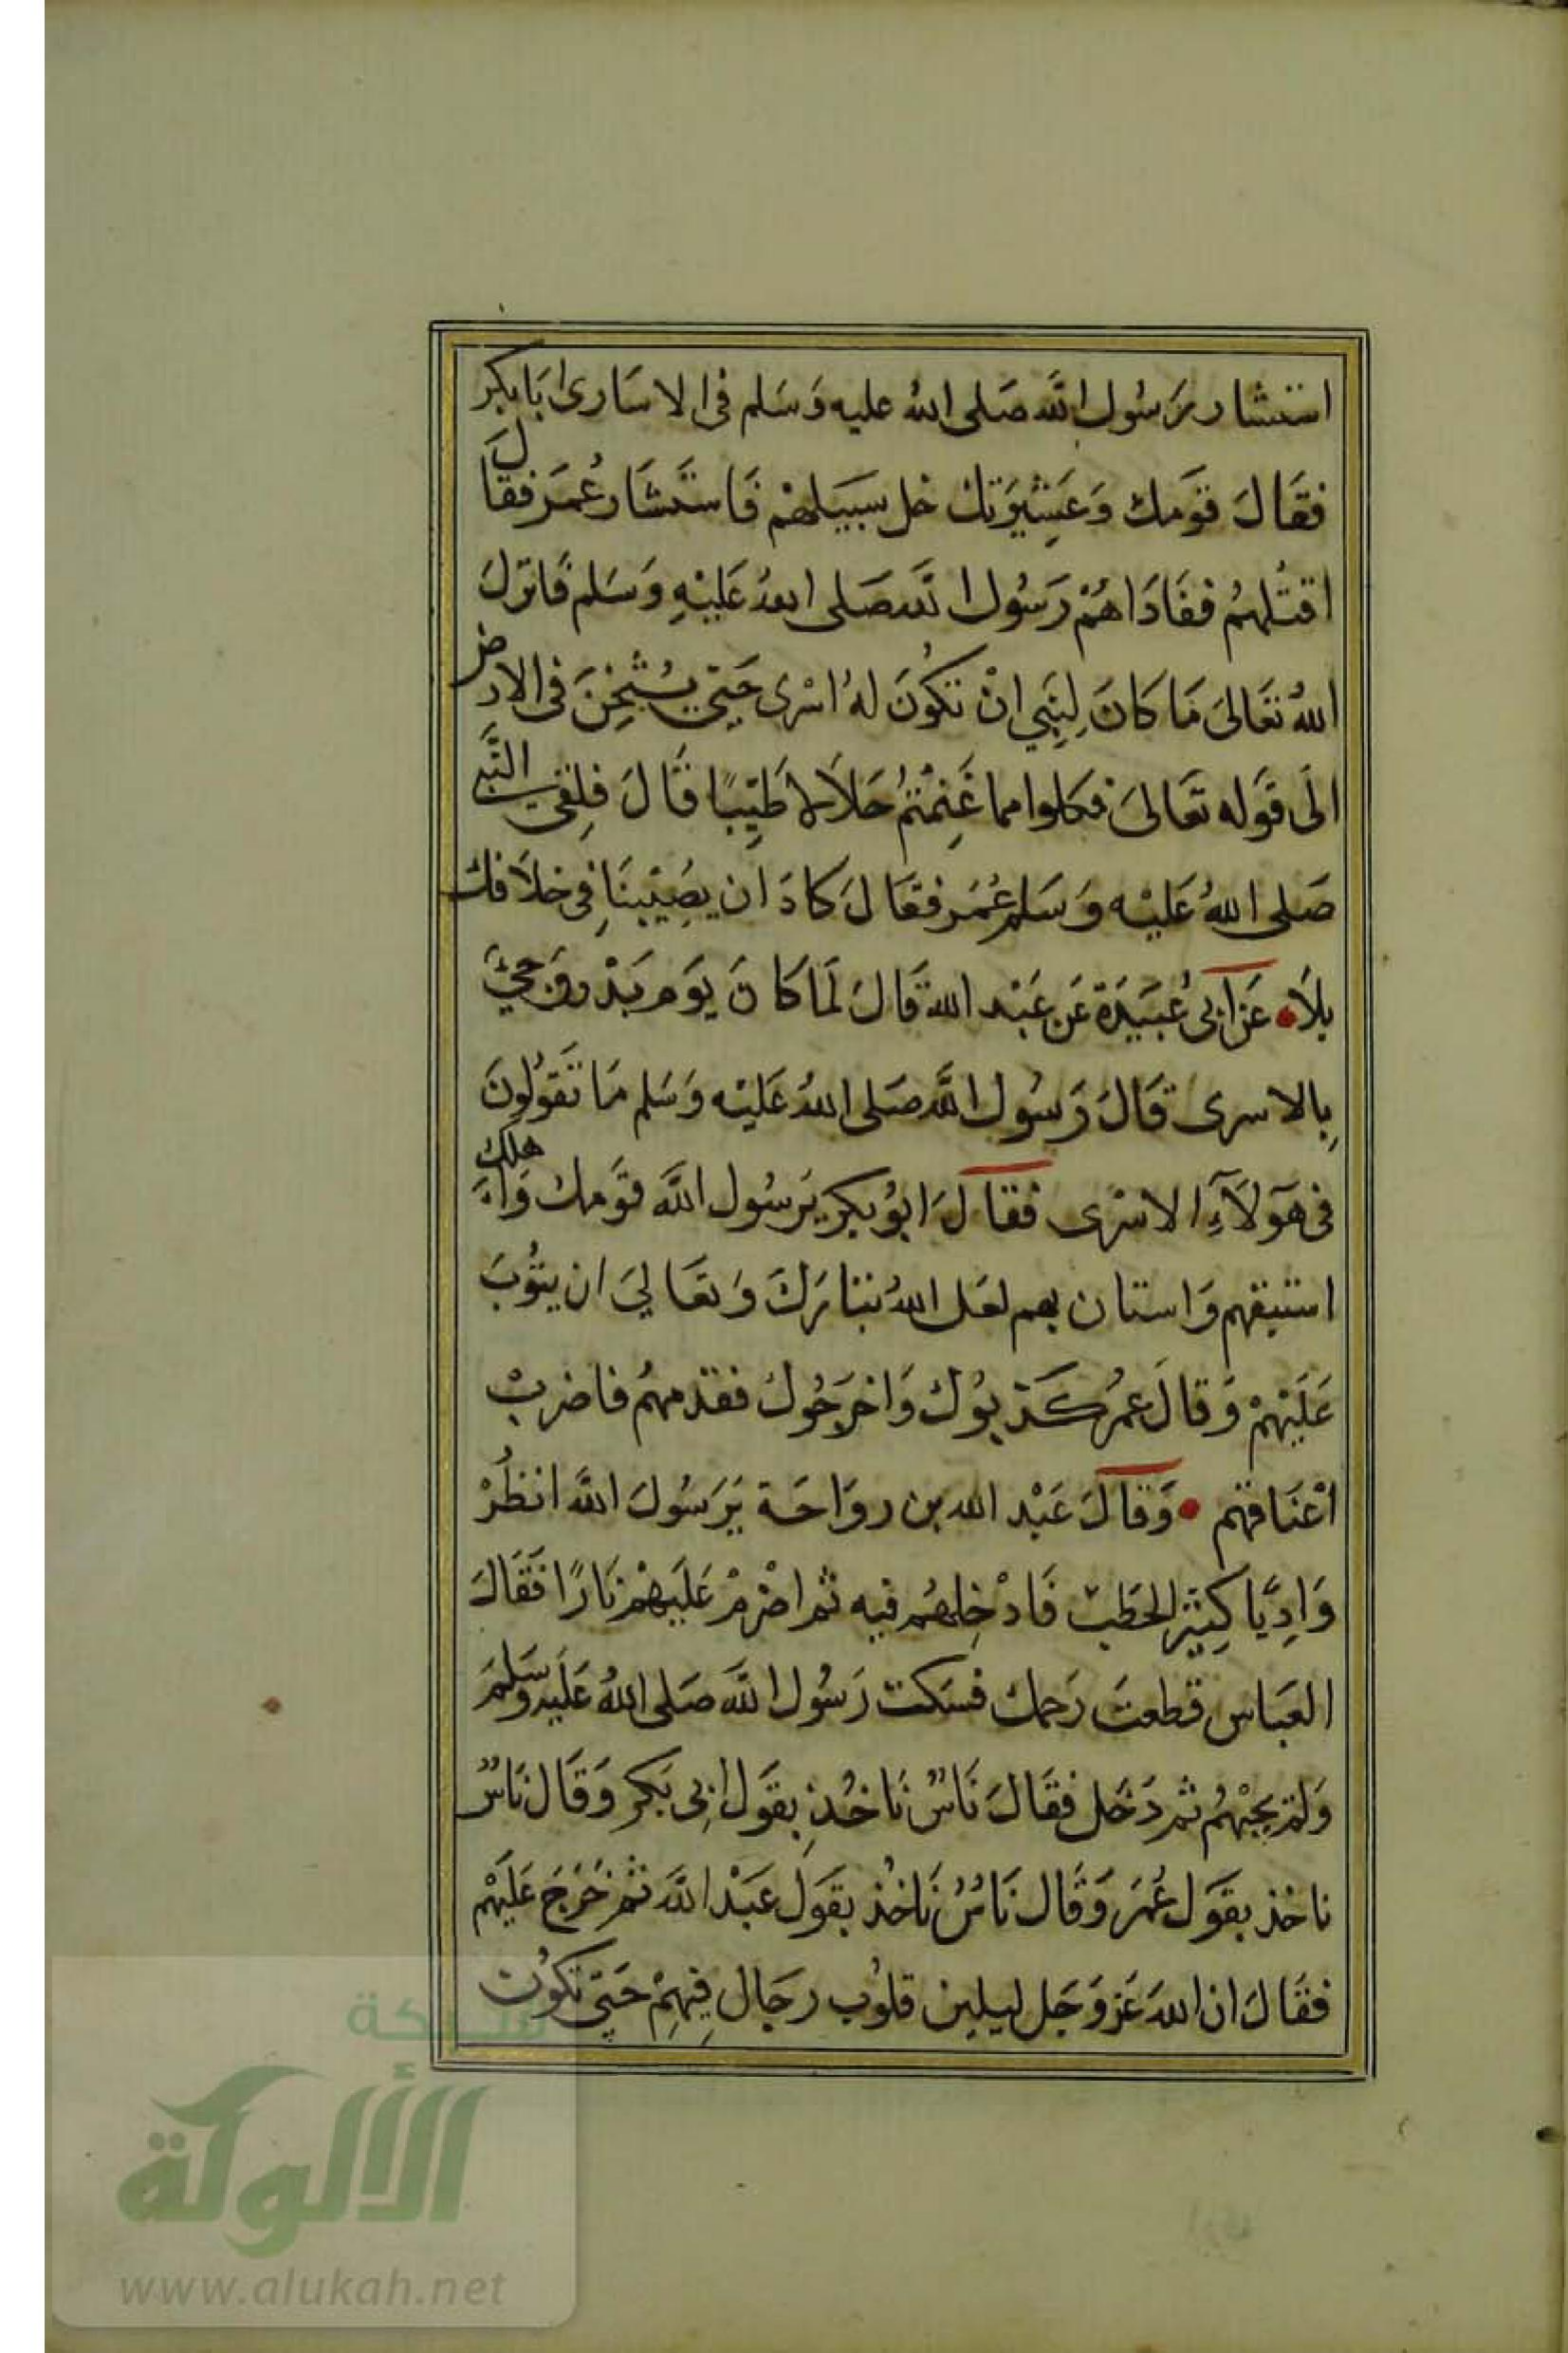 استشار رَسُول اللَّه صَلى اللهُ عليه وَسَلم فى الاسَارى ابَا بكر
فقَالَ قوَمك وَعَشِيرَتك خل سبيَلهمْ فَاستَشَار عُمَر فقالَ
اقتلهمُ ففَادَاهُمْ رَسُول اللَّه صَلى اللهُ عَليْهِ وَسَلم فَانزلَ
اللهُ تعَالىَ مَا كانَ لِنَبِي انْ تكوُنَ لهُ اسْرى حَتي يُثْخِنَ فى الارض
الَى قوَله تعَالىَ فكلوا مما غَنِمْتُمْ حَلاَلا طَيِّبًا قَالَ فلِقى النَّبي
صَلى اللهُ عَليْه وَسَلم عُمَر فقَالَ كادَ ان يصِيْبنَا فِى خلاَفك
بلاَء عَن اَبى عُبَيْدَة عَن عَبْد الله قَالَ لَمَا كَانَ يوَم بَدْر وَجيَ
بِالاسرى قَالَ رَسُول اللَّه صَلى اللهُ عَليْه وَسَلم مَا تَقوُلوُنَ
فى هَؤلاَءِ الاسْرى فقَالَ ابوُ بكر يَرَسُول اللَّه قوَمك وَاهَلك
استبقهم وَاستان بهم لعَل اللهُ تبَارَكَ وَتعَالىَ ان يتوُبَ
عَلَيْهمْ وَقالَ عمُر كَذبوُك وَاخرَجُوك فقدمهمُ فاضربْ
اعْنَاقهم وَقالَ عَبْد الله بن روَاحَة يَرَسُولَ اللَّه انظُرْ
وَادِيًا كثِيْر الحَطَبْ فَادْخِلهُم فيه ثم اضْرمْ عَلَيْهمْ نَارًا فَقَالَ
العبَاس قطعتَ رَحمك فسَكت رَسُول اللَّه صَلى اللهُ عَليَه وَسَلمَ
وَلمْ يجبْهُم ثم دَخَل فقَالَ نَاسٌ نَاخُذ بِقوَل ابِى بَكر وَقَال نَاسٌ
ناخذ بقوَل عُمَر وَقَال نَاسٌ نَاخُذ بقوَل عَبْد اللَّه ثم خَرَجَ عَلَيْهم
فقَالَ ان اللهَ عَز وَجَل ليلين قلوُب رجَال فِيهِمْ حَتي تكوُن
شبكة
الألوكة
www.alukah.net